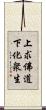 上求佛道
下化衆生